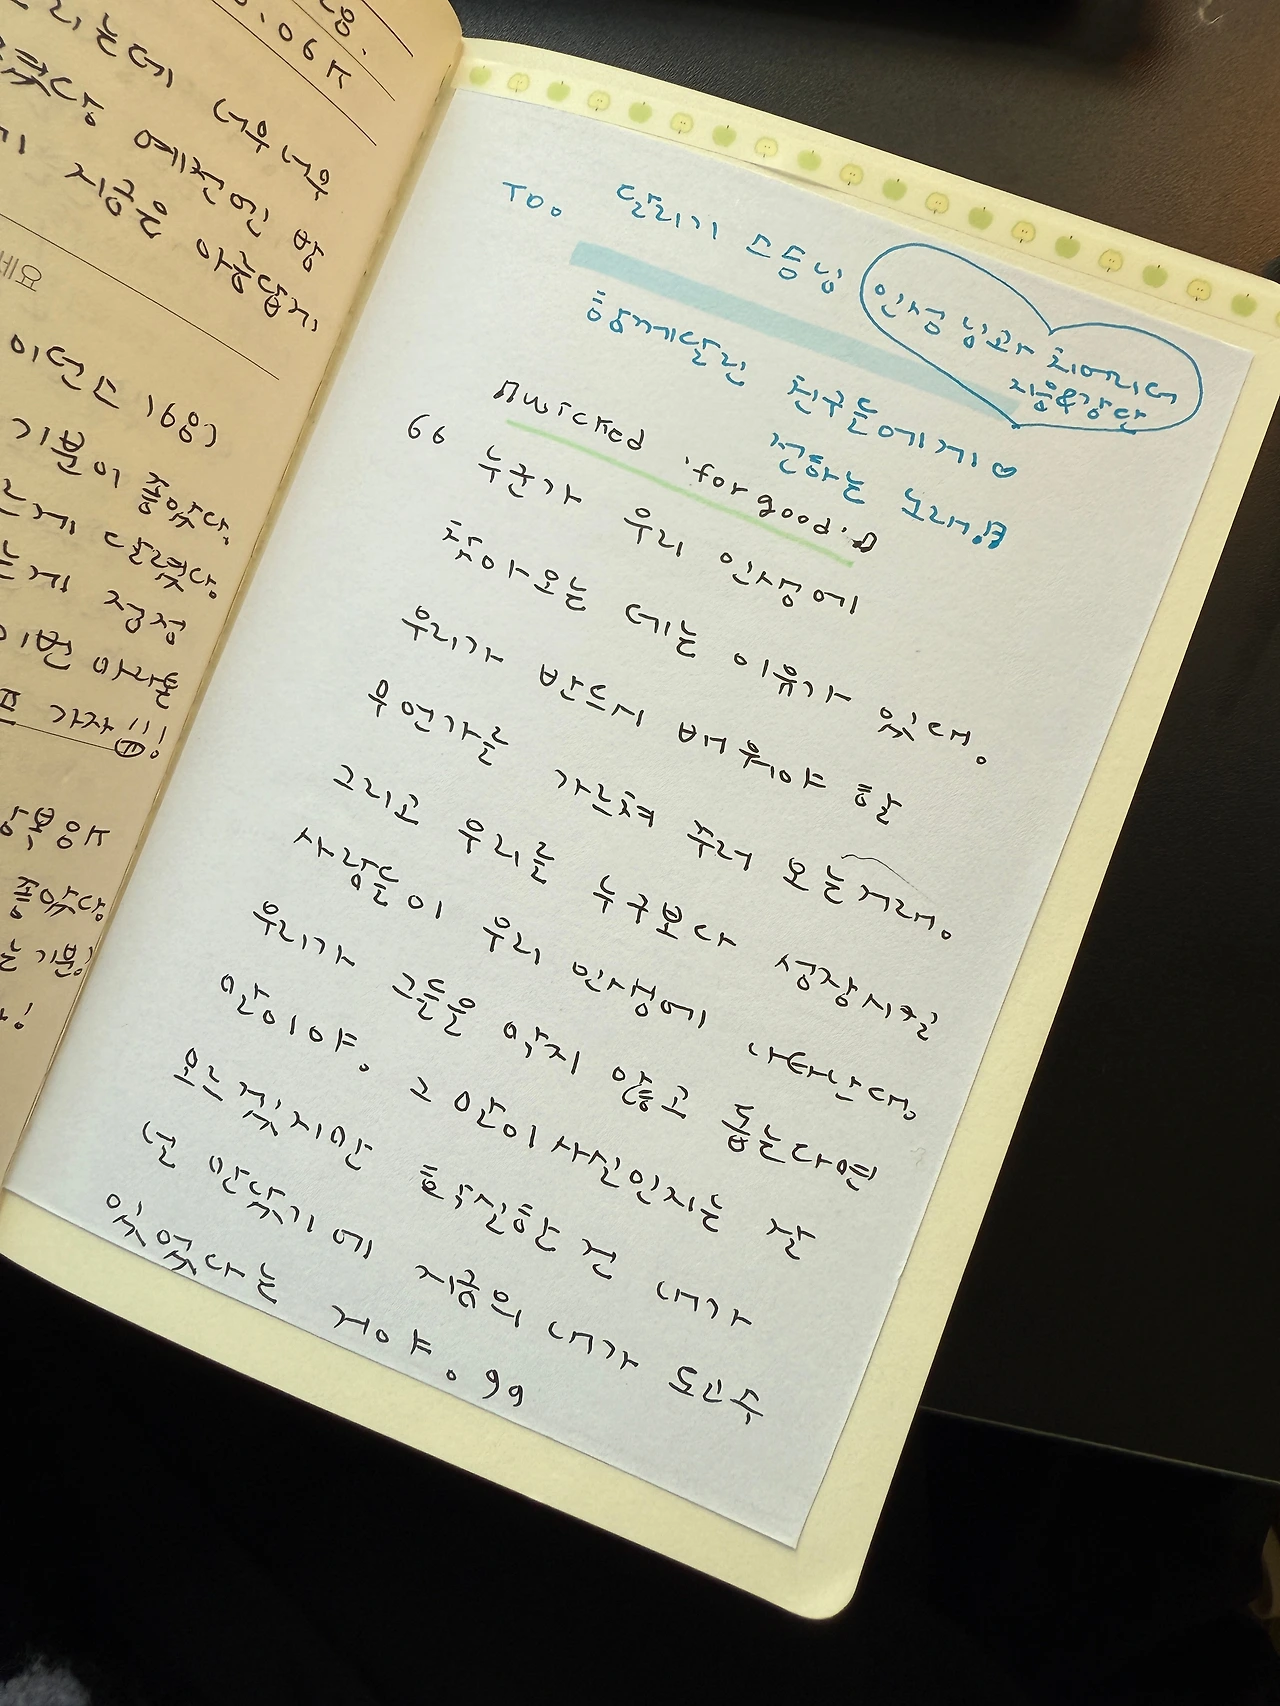 8.
.06K
리는데 너무 너무
예전엔 방
지금은 아름답게
세요
이런 느
기분이 좋았다.
는게 달렸다.
는게 점점
이번 마라톤
가자!!!
행복응K
좋았당
는 기분!
TO. 달리기 스승님
인성님과 치어리더
지용&강산
함께달린 친구들에게♡
전하는 노래!!
♫wicked 'for good'♫
66 누군가 우리 인생에
찾아오는 데는 이유가 있대.
우리가 반드시 배워야 할
무언가를 가르쳐 주러 오는거래.
그리고 우리를 누구보다 성장시킬
사람들이 우리 인생에 나타난대.
우리가 그들을 막지 않고 돕는다면
말이야. 그 말이 사실인지는 잘
모르겠지만 확실한 건 내가
널 만났기에 지금의 내가 될 수
있었다는 거야. 99